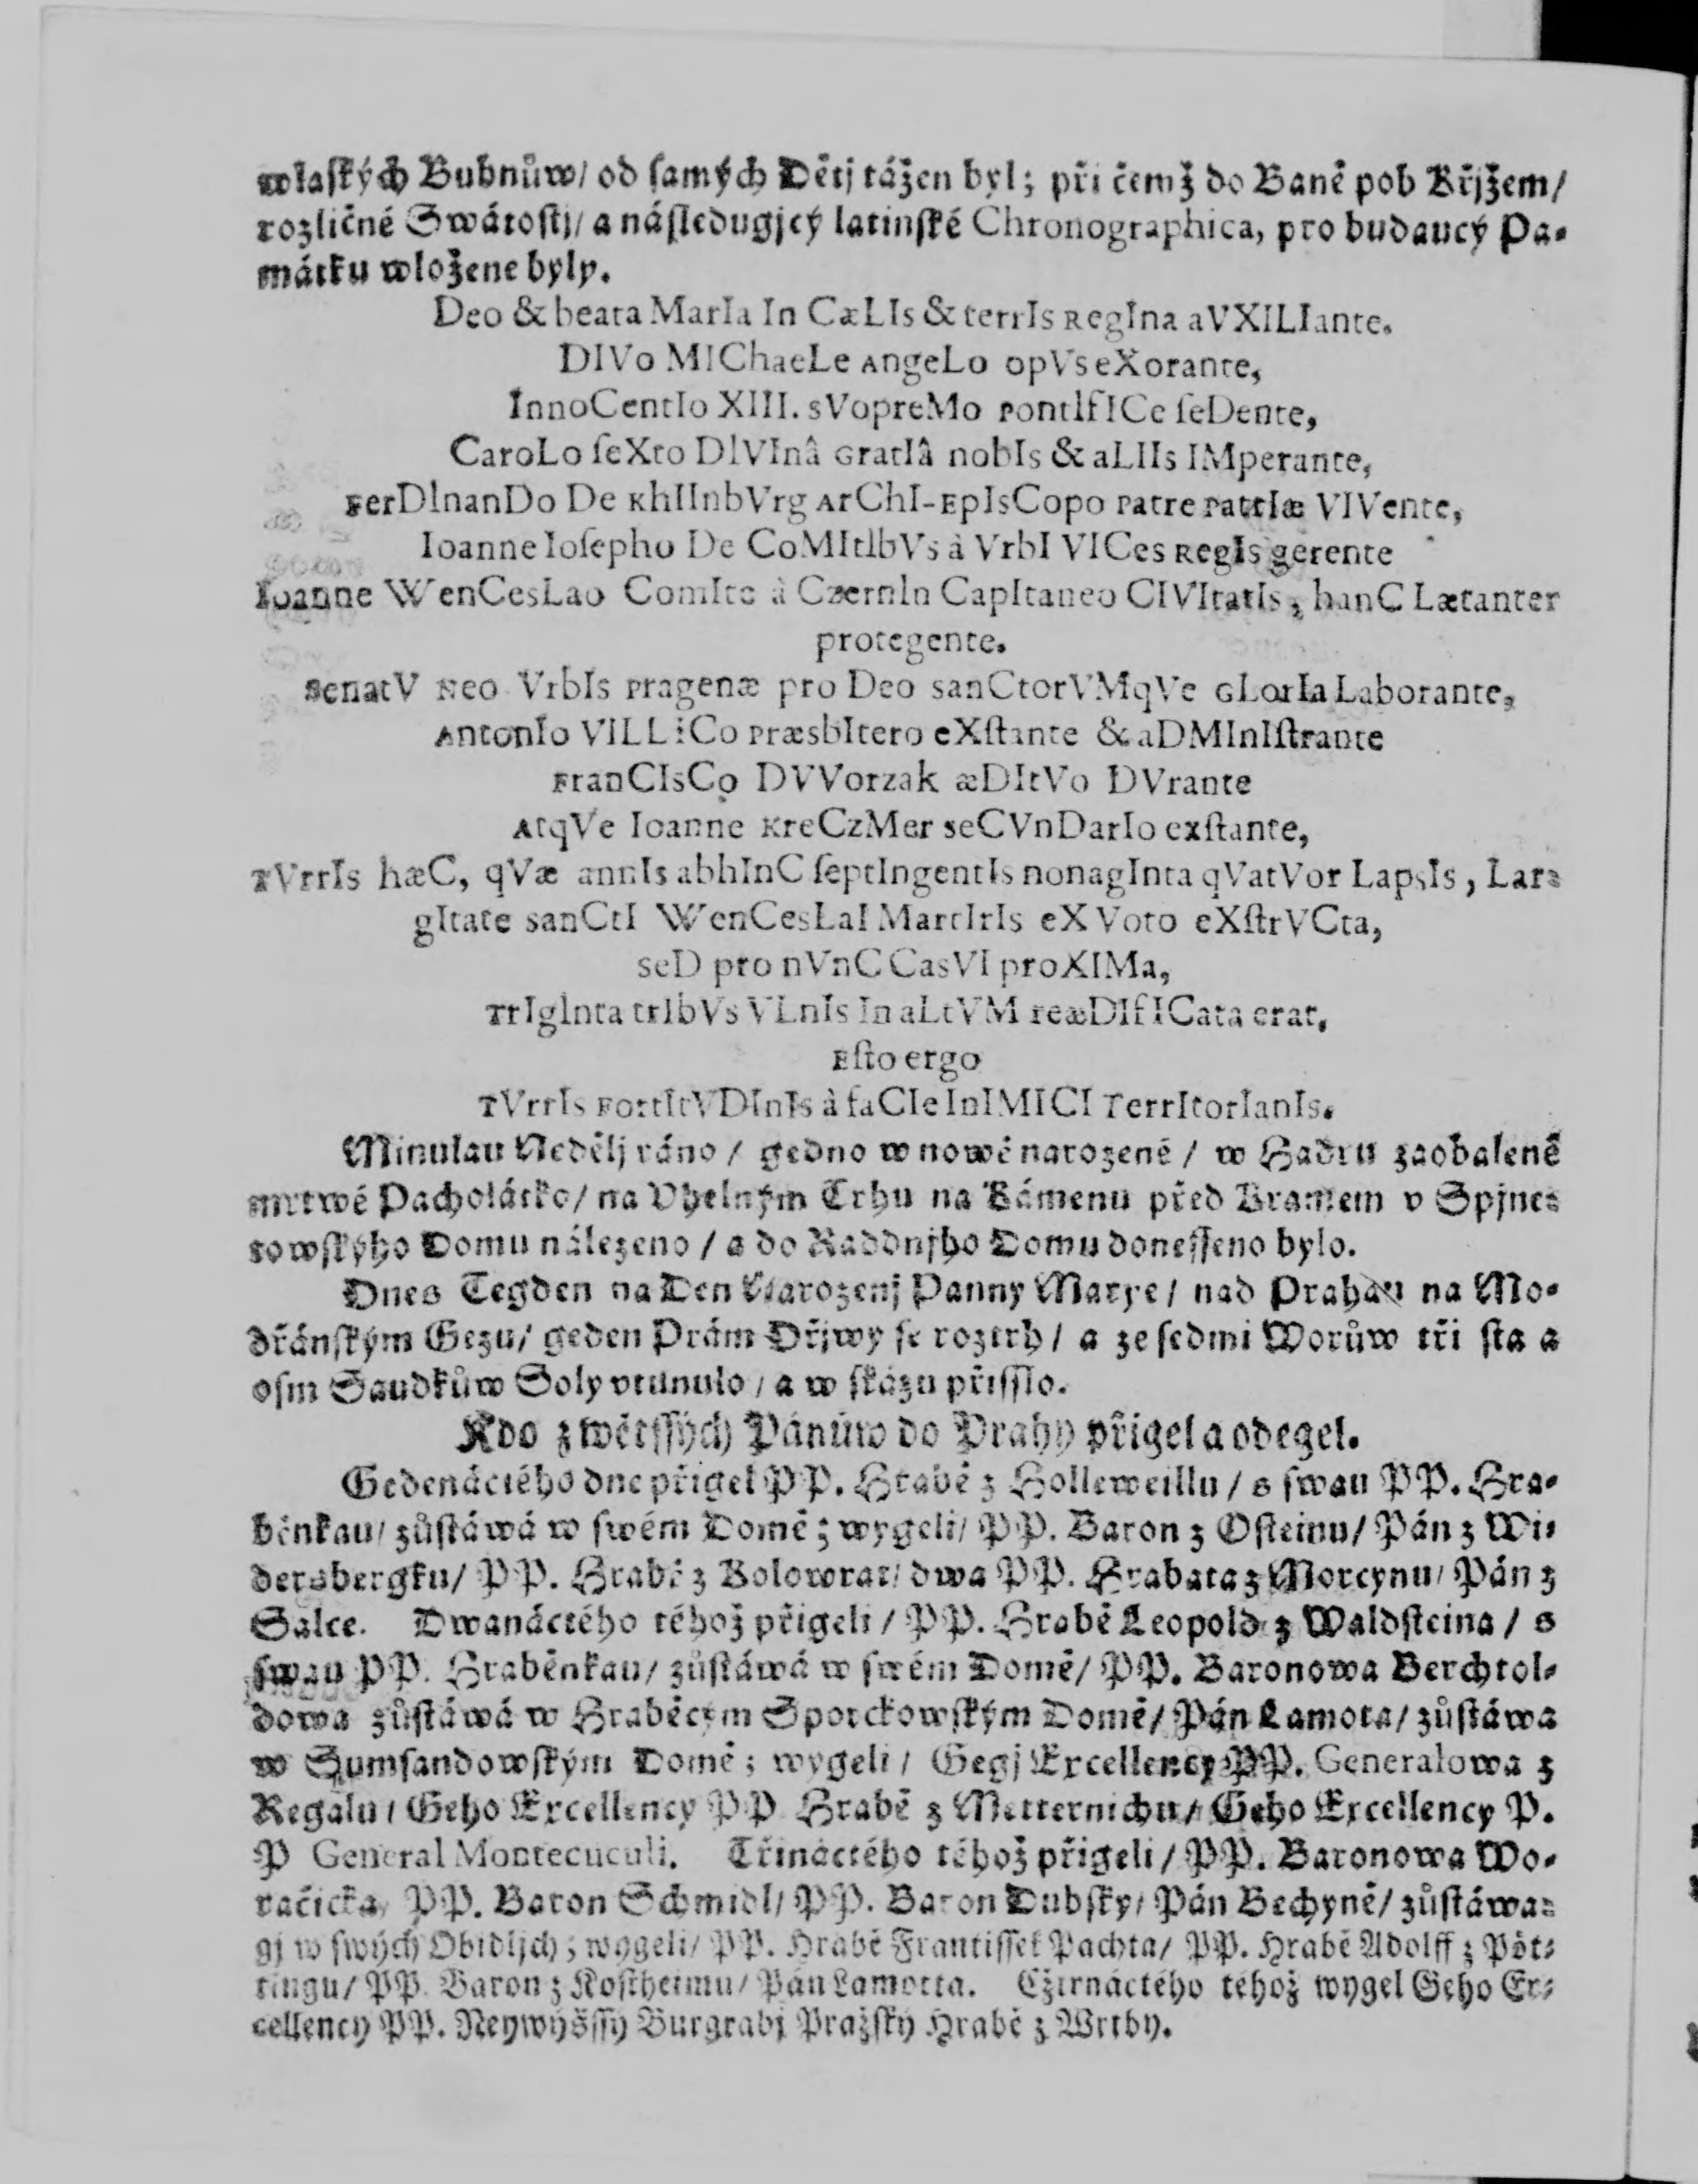 wlaſkých Bubnůw/ od ſamých Dětj tážen byl; při čemž do Baně pob Křjžem/
rozličné Swátoſtj/ a náſledugjcý latinſké Chronographica, pro budaucý Pa-
mátku wložene byly.
Deo & beata MarIa In CæLIs & terrIs RegIna aVXILIante.
DIVo MIChaeLe AngeLo opVs eXorante,
InnoCentIo XIII. sVopreMo PontIfICe ſeDente,
CaroLo ſeXto DIVInâ GratIâ nobIs & aLIIs IMperante,
FerDInanDo De KhIInbVrg ArChI-EpIsCopo Patre PatrIæ VIVente,
Ioanne Ioſepho De CoMItIbVs à VrbI VICes RegIs gerente
Ioanne WenCesLao ComIte à CzernIn CapItaneo CIVItatIs, hanC Lætanter
protegente.
SenatV Neo VrbIs Pragenæ pro Deo sanCtorVMqVe GLorIa Laborante,
AntonIo VILLiCo PræsbItero eXſtante & aDMInIſtrante
FranCIsCo DVVorzak æDItVo DVrante
AtqVe Ioanne KreCzMer seCVnDarIo exſtante,
TVrrIs hæC, qVæ annIs abhInC ſeptIngentIs nonagInta qVatVor LapsIs, Lar-
gItate sanCtI WenCesLaI MartIrIs eX Voto eXſtrVCta,
seD pro nVnC CasVI proXIMa,
TrIgInta trIbVs VLnIs In aLtVM reæDIfICata erat,
Eſto ergo
TVrrIs FortItVDInIs à faCIe InIMICI TerrItorIanIs.
Minulau Nedělj ráno / gedno w nowě narozené / w Hadru zaobalené
mrtwé Pacholátko/ na Vhelným Trhu na Kámenu před Kramem v Spjne-
rowſkýho Domu nálezeno / a do Raddnjho Domu doneſſeno bylo.
Dnes Tegden na Den Narozenj Panny Marye / nad Prahau na Mo-
dřánſkým Gezu/ geden Prám Dřjwy ſe roztrh / a ze ſedmi Worůw tři ſta a
oſm Saudkůw Soly vtunulo / a w ſkázu přiſſlo.
Kdo z wětſſých Pánůw do Prahy přigel a odegel.
Gedenáctého dne přigel PP. Hrabě z Holleweillu / s ſwau PP. Hra-
běnkau/ zůſtáwá w ſwém Domě; wygeli/ PP. Baron z Oſteinu/ Pán z Wi-
dersbergku/ PP. Hrabě z Kolowrat/ dwa PP. Hrabata z Morcynu/ Pán z
Salce. Dwanáctého téhož přigeli / PP. Hrabě Leopold z Waldſteina / s
ſwau PP. Hraběnkau/ zůſtáwá w ſwém Domě/ PP. Baronowa Berchtol-
dowa zůſtáwá w Hraběcým Sporckowſkým Domě/ Pán Lamota/ zůſtáwa
w Sumſandowſkým Domě; wygeli / Gegj Excellency PP. Generalowa z
Regalu / Geho Excellency PP Hrabě z Metternichu/ Geho Excellency P.
P General Montecuculi. Třináctého téhož přigeli / PP. Baronowa Wo-
račicka/ PP. Baron Schmidl/ PP. Baron Dubſky/ Pán Bechyně/ zůſtáwa-
gj w ſwých Obidljch; wygeli/ PP. Hrabě Frantiſſek Pachta/ PP. Hrabě Adolff z Pöt-
tingu/ PP. Baron z Koſtheimu/ Pán Lamotta. Cžtrnáctého téhož wygel Geho Ex-
cellency PP. Neywýšſſý Burgrabj Pražſký Hrabě z Wrtby.